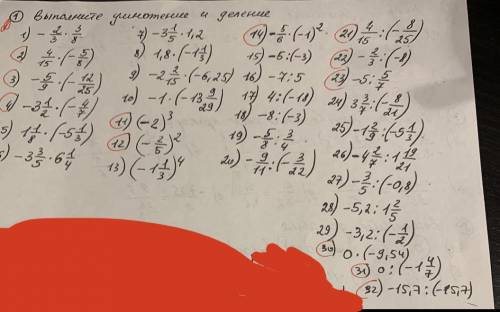 ① Выполните умножение и деление
1) -2/3 · 3/8
2) 4/15 · (-5/8)
3) -5/9 · (-12/25)
4) -3 1/2 · (-4/7)
5) 1 1/8 · (-5 1/3)
-3 3/5 · 6 1/4
7) -3 1/5 · 1,2
8) 1,8 · (-1 1/3)
9) -2 2/15 · (-6,25)
10) -1 · (-13 9/29)
11) (-2)³
12) (-2/5)²
13) (-1 1/3)⁴
14) -5/6 · (-1)²
15) -6 : (-3)
16) -7 : 5
17) 4 : (-18)
18) -8 : (-3)
19) -5/8 : 3/4
20) -9/11 : (-3/22)
21) 4/15 : (-8/25)
22) -2/3 : (-8)
23) -5 : 5/7
24) 3 3/7 : (-8/21)
25) -1 2/9 : (-5 1/3)
26) -4 2/7 : 1 19/21
27) -3/5 : (-0,8)
28) -5,2 : 1 2/5
29) -3,2 : (-1/2)
30) 0 · (-9,54)
31) 0 : (-1 4/7)
32) -15,7 : (-15,7)